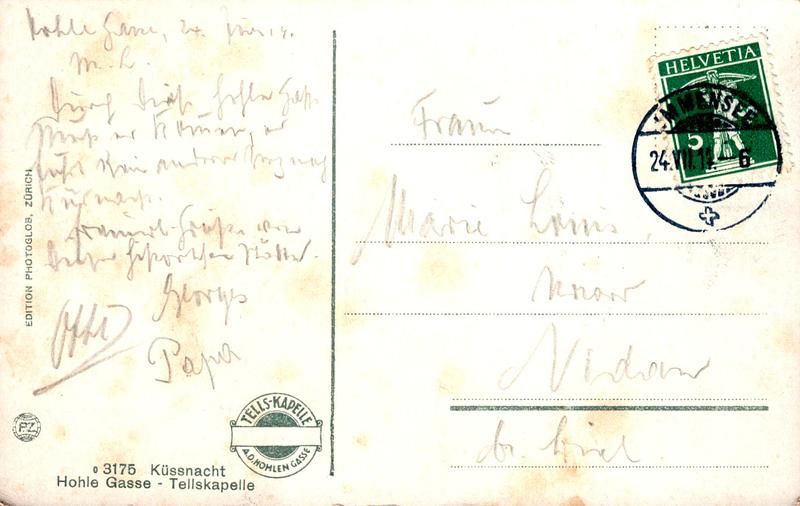 Hohle Gasse, 24. Juli 14.
M. L.
Durch diese hohle Gasse
Muss er kommen, er
führt kein andrer Weg nach
Küssnacht.
Grüsse von
dieser historischen Stätte.
Georges
Papa
EDITION PHOTOGLOB, ZÜRICH
PZ
TELLS-KAPELLE
A.D. HOHLEN GASSE
o 3175 Küssnacht
Hohle Gasse - Tellskapelle
HELVETIA
5
IMMENSEE
24.VII.14.-6
Frau
Marie Louis,
Nidau
b. Biel